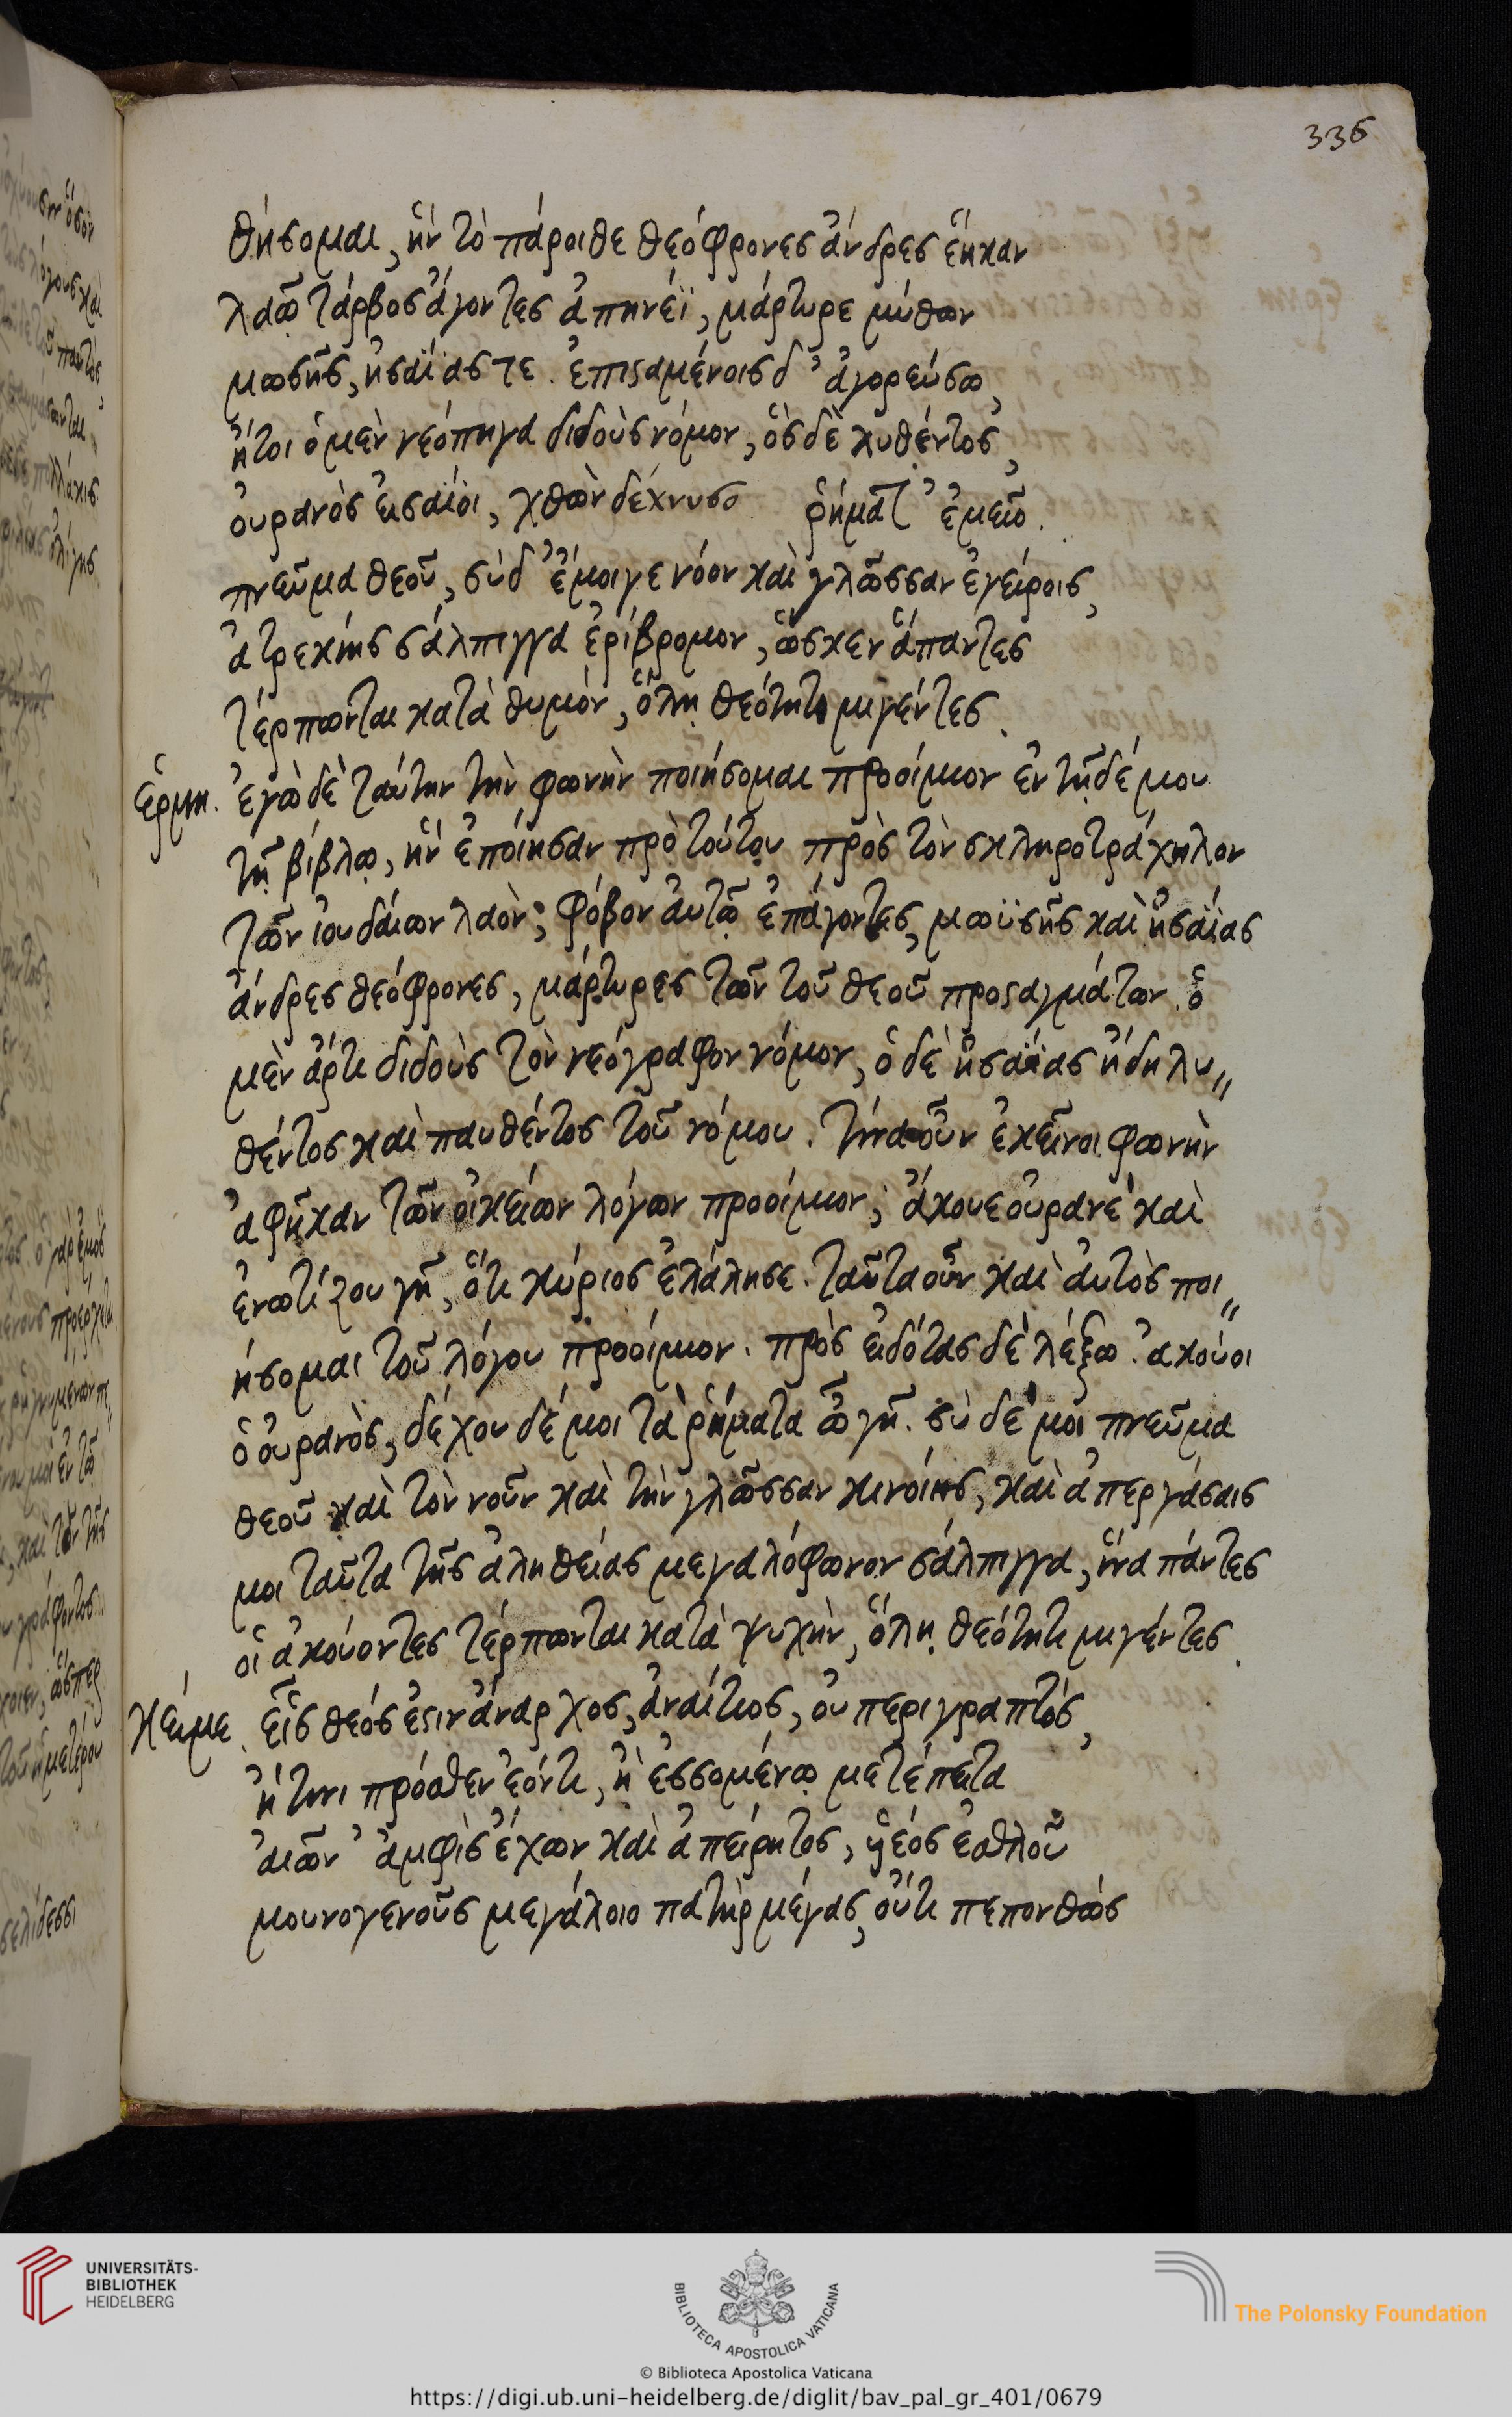 336
θήσομαι, ἣν τὸ πάροιθε θεόφρονες ἄνδρες ἕηκαν
λαῷ τάρβος ἄγοντες ἀπηνέϊ, μάρτυρε μύθων
μωσῆς, ἠσαΐας τε. ἐπισταμένοις δ' ἀγορεύσω,
ἤτοι ὁ μὲν νεόπηγα διδοὺς νόμον, ὃς δὲ λυθέντος,
ὀυρανὸς ἐισαΐοι, χθὼν δέχνυσο ῥήματ' ἐμεῖο.
πνεῦμα θεοῦ, σὺ δ' ἔμοιγε νόον καὶ γλῶσσαν ἐγείροις,
ἀτρεκίης σάλπιγγα ἐρίβρομον, ὥς κεν ἅπαντες
τέρπωνται κατὰ θυμόν, ὅλῃ θεότητι μιγέντες.
ἑρμη. ἐγὼ δὲ ταύτην τὴν φωνὴν ποιήσομαι προοίμιον ἐν τῇδέ μου
τῇ βίβλῳ, ἣν ἐποίησαν πρὸ τούτου πρὸς τὸν σκληροτράχηλον
τῶν ἰουδάιων λαὸν; φόβον ἀυτῷ ἐπάγοντες, μωϋσῆς καὶ ἠσαΐας
ἄνδρες θεόφρονες, μάρτυρες τῶν τοῦ θεοῦ προσταγμάτων. ὁ
μὲν ἄρτι διδοὺς τὸν νεόγραφον νόμον, ὁ δὲ ἠσαΐας ἤδη λυ〃
θέντος καὶ παυθέντος τοῦ νόμου. τίνα οὖν ἐκεῖνοι φωνὴν
ἀφῆκαν τῶν οἰκείων λόγων προοίμιον; ἄκουε ὀυρανὲ καὶ
ἐνωτίζου γῆ, ὅτι κύριος ἐλάλησε. ταῦτα οὖν καὶ ἀυτὸς ποι〃
ήσομαι τοῦ λόγου προοίμιον. πρὸς ἐιδότας δὲ λέξω. ἀκούοι
ὁ ὀυρανὸς, δέχου δέ μοι τὰ ῥήματα ὦ γῆ. σὺ δέ μοι πνεῦμα
θεοῦ καὶ τὸν νοῦν καὶ τὴν γλῶσσαν κινοίης, καὶ ἀπεργάσαις
μοι ταῦτα τῆς ἀληθείας μεγαλόφωνον σάλπιγγα, ἵνα πάντες
οἱ ἀκούοντες τέρπωνται κατὰ ψυχὴν, ὅλῃ θεότητι μιγέντες.
κείμε. εἷς θεός ἐστιν ἄναρχος, ἀναίτιος, ὀυ περιγραπτὸς,
ἤ τινι πρόσθεν ἐόντι, ἢ ἐσσομένῳ μετέπειτα
ἀιῶν' ἀμφὶς ἔχων καὶ ἀπείριτος, ὑιέος ἐσθλοῦ
μουνογενοῦς μεγάλοιο πατὴρ μέγας, οὔτι πεπονθὼς
UNIVERSITÄTS-
BIBLIOTHEK
HEIDELBERG
BIBLIOTECA APOSTOLICA VATICANA
The Polonsky Foundation
© Biblioteca Apostolica Vaticana
https://digi.ub.uni-heidelberg.de/diglit/bav_pal_gr_401/0679